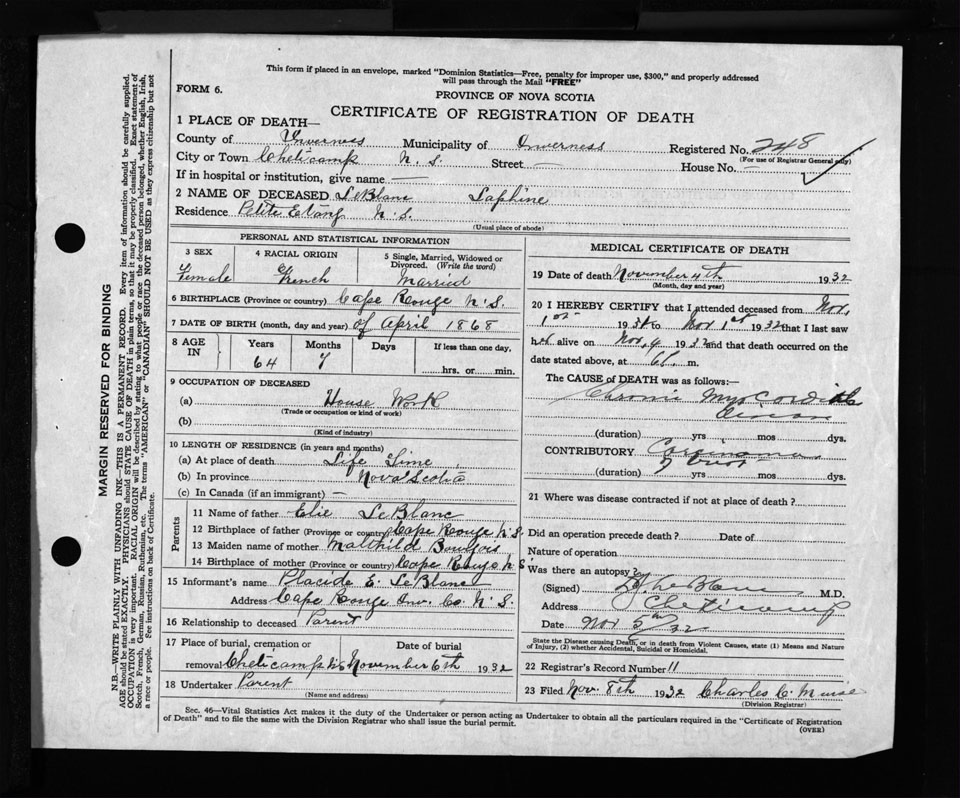 This form if placed in an envelope, marked "Dominion Statistics—Free, penalty for improper use, $300," and properly addressed
will pass through the Mail "FREE"
FORM 6.
PROVINCE OF NOVA SCOTIA
CERTIFICATE OF REGISTRATION OF DEATH
1 PLACE OF DEATH—
County of Inverness Municipality of Inverness Registered No. 248
(For use of Registrar General only)
City or Town Cheticamp N. S. Street — House No. —
If in hospital or institution, give name —
2 NAME OF DECEASED LeBlanc Saphine
Residence Petite Etang N. S.
(Usual place of abode)
PERSONAL AND STATISTICAL INFORMATION
3 SEX 4 RACIAL ORIGIN 5 Single, Married, Widowed or
Divorced. (Write the word)
Female French Married
6 BIRTHPLACE (Province or country) Cape Rouge N.S.
7 DATE OF BIRTH (month, day and year) of April 1868
8 AGE IN Years Months Days If less than one day,
64 7 hrs. or min.
9 OCCUPATION OF DECEASED
(a) House Work
(Trade or occupation or kind of work)
(b)
(Kind of industry)
10 LENGTH OF RESIDENCE (in years and months)
(a) At place of death Life Time
(b) In province Nova Scotia
(c) In Canada (if an immigrant) —
Parents
11 Name of father Elie LeBlanc
12 Birthplace of father (Province or country) Cape Rouge N.S.
13 Maiden name of mother Mathild Bourgois
14 Birthplace of mother (Province or country) Cape Rouge N.S
15 Informant's name Placide E. LeBlanc
Address Cape Rouge Inv. Co. N.S.
16 Relationship to deceased Parent
17 Place of burial, cremation or Date of burial
removal Cheticamp N.S November 6th 1932
18 Undertaker Parent
(Name and address)
MEDICAL CERTIFICATE OF DEATH
19 Date of death November 4th 1932
(Month, day and year)
20 I HEREBY CERTIFY that I attended deceased from Nov.
1st 1932 to Nov 1st 1932 that I last saw
her alive on Nov. 1932 and that death occurred on the
date stated above, at m.
The CAUSE of DEATH was as follows:—
Chronic
(duration) yrs mos dys.
CONTRIBUTORY
(duration) yrs mos dys.
21 Where was disease contracted if not at place of death?
Did an operation precede death? Date of
Nature of operation
Was there an autopsy?
(Signed) LeBlanc M.D.
Address Cheticamp
Date Nov 5th/32
State the Disease causing Death, or in death from Violent Causes, state (1) Means and Nature
of Injury, (2) whether Accidental, Suicidal or Homicidal.
22 Registrar's Record Number 11
23 Filed Nov. 8th 1932 Charles C.
(Division Registrar)
Sec. 46—Vital Statistics Act makes it the duty of the Undertaker or person acting as Undertaker to obtain all the particulars required in the "Certificate of Registration
of Death" and to file the same with the Division Registrar who shall issue the burial permit.
(OVER)
MARGIN RESERVED FOR BINDING
N.B.—WRITE PLAINLY WITH UNFADING INK—THIS IS A PERMANENT RECORD. Every item of information should be carefully supplied.
AGE should be stated EXACTLY. PHYSICIANS should STATE CAUSE OF DEATH in plain terms, so that it may be properly classified. Exact statement of
OCCUPATION is very important. RACIAL ORIGIN will be described by stating to what people or race the deceased person belonged, whether English, Irish,
Scotch, French, German, Russian, Ruthenian, etc. The terms "AMERICAN" or "CANADIAN" SHOULD NOT BE USED as they express citizenship but not
a race or people. See instructions on back of Certificate.